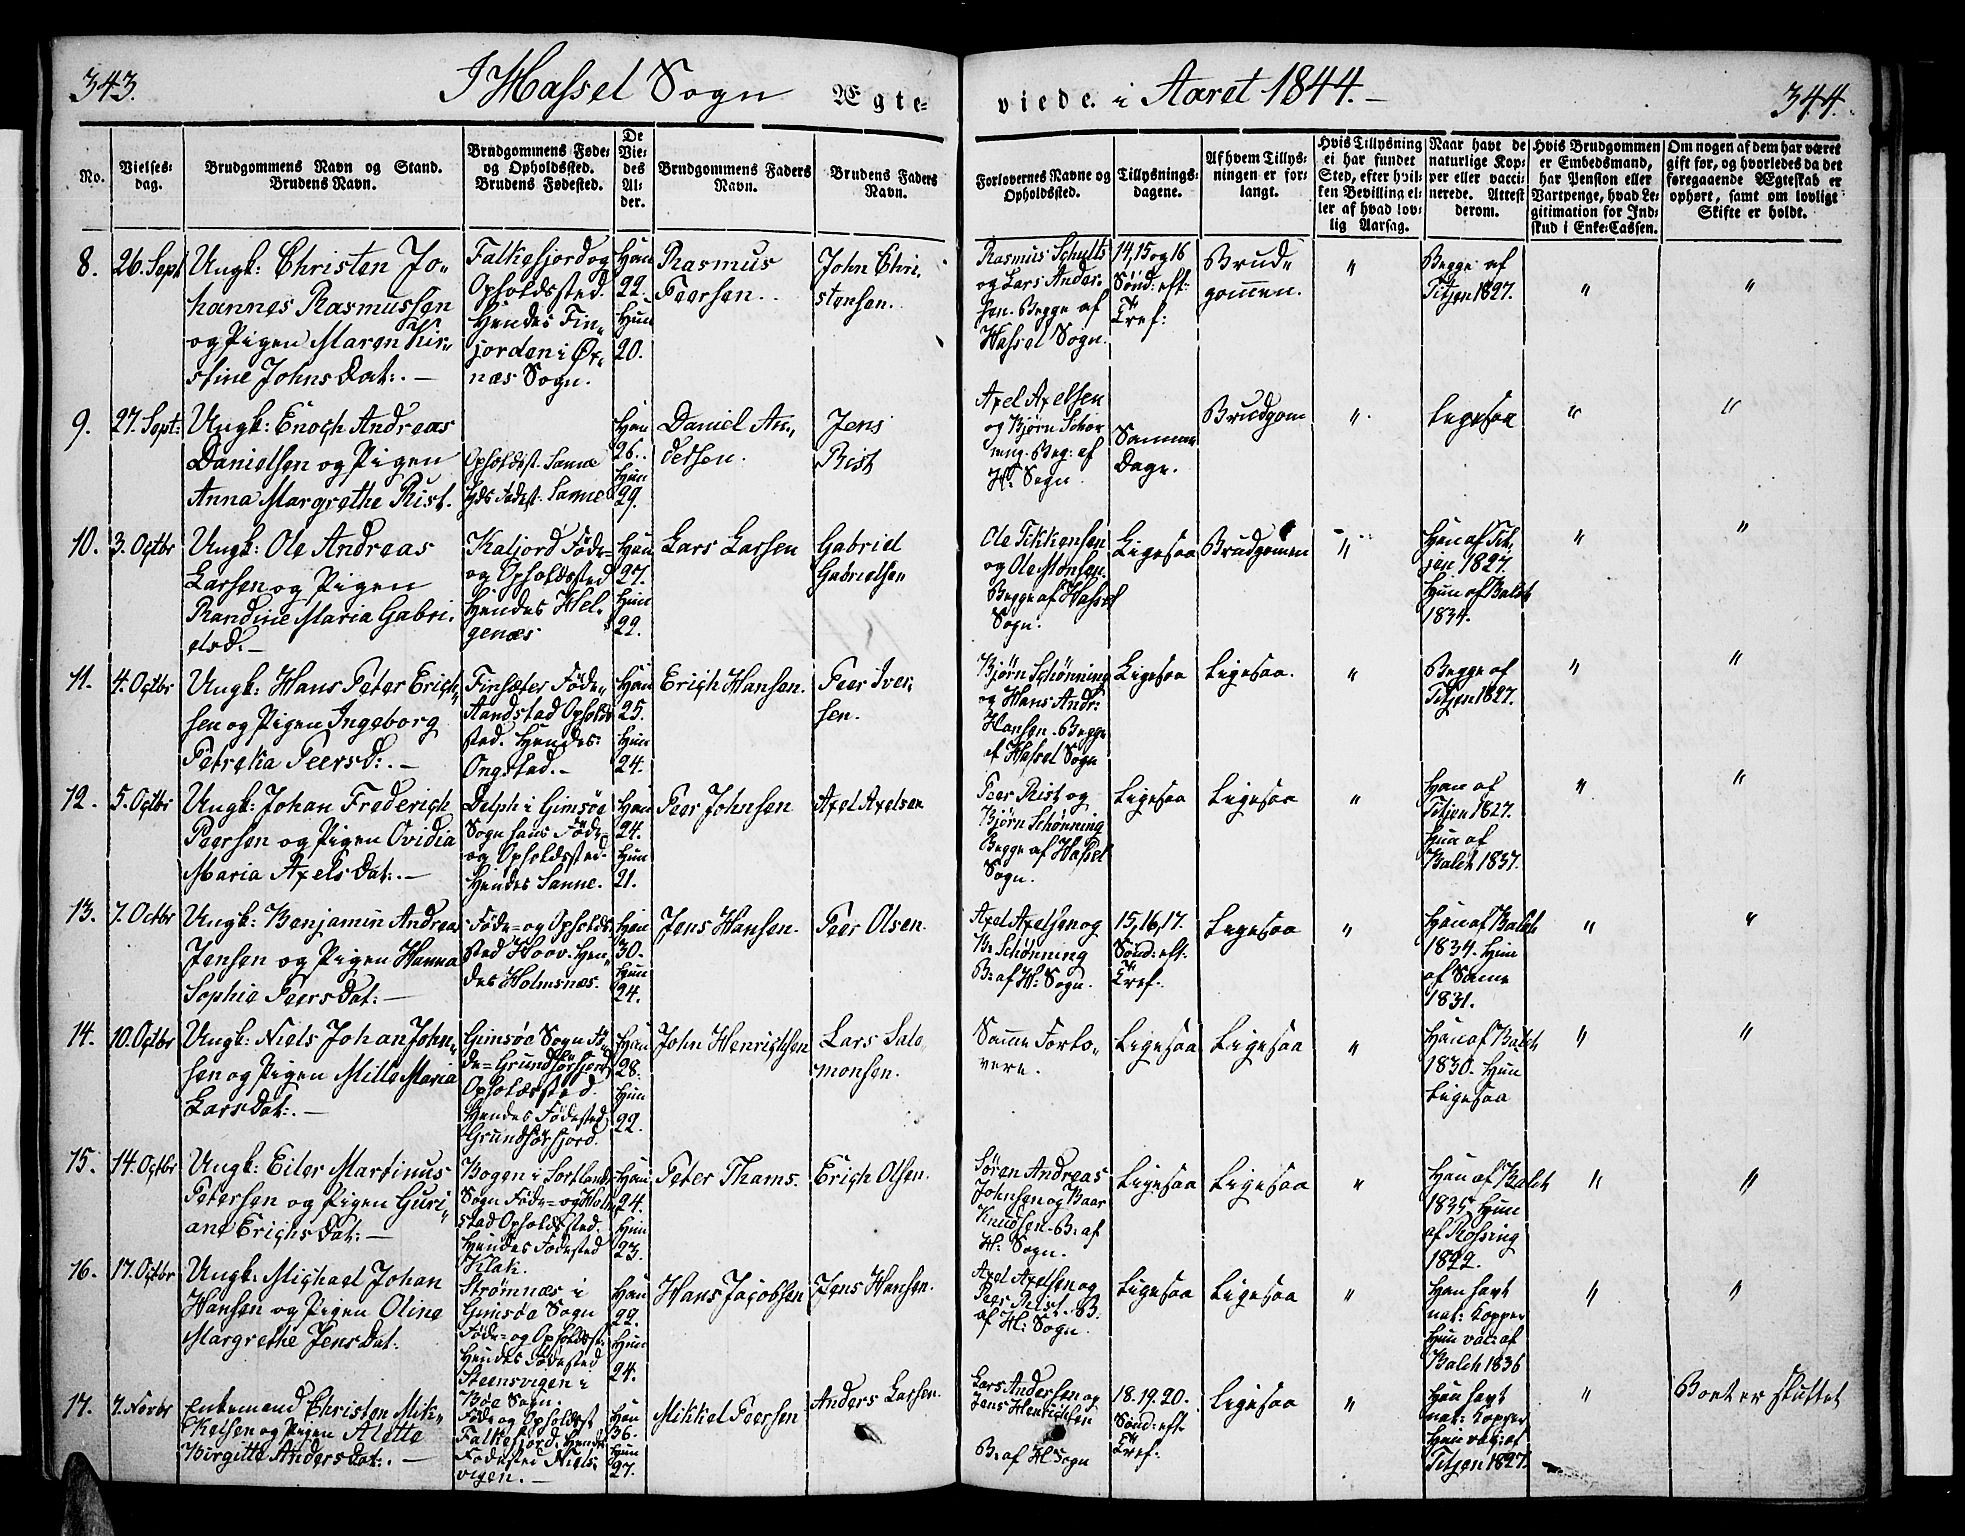 343.
I Hassel Sogn Ægte-
viede. i Aaret 1844.-
344.
No.
Vielses-
dag.
Brudgommens Navn og Stand.
Brudens Navn.
Brudgommens Føde-
og Opholdssted.
Brudens Fødested.
De
Vie-
des
Al-
der.
Brudgommens Faders
Navn.
Brudens Faders
Navn.
Forlovernes Navne og
Opholdssted.
Tillysnings-
dagene.
Af hvem Tillys-
ningen er for-
langt.
Hvis Tillysning
ei har fundet
Sted, efter hvil-
ken Bevilling el-
ler af hvad lov-
lig Aarsag.
Naar havt de
naturlige Kop-
per eller vacci-
nerede. Attest
derom.
Hvis Brudgommen
er Embedsmand,
har Pension eller
Vartpenge, hvad Le-
gitimation for Ind-
skud i Enke-Cassen.
Om nogen af dem har været
gift før, og hvorledes da det
foregaaende Ægteskab er
ophørt, samt om lovligt
Skifte er holdt.
8.
26. Sept
Ungk: Christen Jo-
hannes Rasmussen
og Pigen Maren Kir-
stine Johns Dat:. -
Falkefjord og
Opholdssted.
Hendes Fin-
jorden i Øx-
næs Sogn.
Han
22.
Hun
20.
Rasmus
Peersen.
John Chri-
stensen.
Rasmus Schults
og Lars Ander-
sen. Begge af
Hassel Sogn.
14, 15 og 16
Sønd: eft:
Tref:
Brud-
gommen.
"
Begge af
Titjen 1827.
"
"
9.
27. Sept:
Ungk: Enoch Andreas
Danielsen og Pigen
Anna Margrethe Rist.
Opholdst. Sanne
Hds Fødest. Sanne
Han
26.
Hun
29.
Daniel An-
dersen.
Jens
Rist
Axel Axelsen
og Bjørn Schøn
ning. Beg: af
H: Sogn.
Samme
Dage.
Brudgom
"
Ligesaa
"
"
10.
3. Octbr
Ungk: Ole Andreas
Larsen og Pigen
Randine Maria Gabri-
elsd. -
Kaljord Føde-
og Opholdssted
Hendes Hel-
genæs
Han
27.
Hun
22.
Lars Larsen
Gabriel
Gabrielsen
Ole Tikkensen
og Ole Monsen.
Begge af Hassel
Sogn.
Ligesaa
Brudgomen
"
Han af Tit-
jen 1827.
Hun af Balch
1834.
"
"
11.
4. Octbr
Ungk: Hans Peter Erich-
sen og Pigen Ingeborg
Petrcka Peersd:. -
Finsæter Føde-
Sandstad Opholds
sted. Hendes:
Ongstad. -
Han
25.
Hun
24.
Erich Hansen.
Peer Iver-
sen.
Bjørn Schønning
og Hans Andr:
Hansen. Begge
af Hassel Sogn
Ligesaa
Ligesaa.
"
Begge af
Titjen 1827.
"
"
12.
5. Octbr
Ungk: Johan Frederich
Peersen og Pigen Ovidia
Maria Axels Dat:. -
Delph i Gimsøe
Sogn hans Føde-
og Opholdssted.
Hendes Sanne.
Han
24.
Hun
21.
Peer Johnsen
Axel Axelsen
Peer Rist og
Bjørn Schønning
Begge af Hassel
Sogn.
Ligesaa
Ligesaa
"
Han af
Titjen 1827.
Hun af
Balch 1837.
"
"
13.
7. Octbr
Ungk: Benjamin Andreas
Jensen og Pigen Hanna
Sophia Peers Dat: -
Føde- og Opholds
sted Hoov. Hen-
des Holmsnæs.
Han
30.
Hun
24.
Jens Hansen.
Peer Olsen.
Axel Axelsen og
B: Schønning
B: af H: Sogn.
15, 16, 17.
Sønd: eft.
Tref.
Ligesaa
"
Han af Balch
1834. Hun
af Same
1831.
"
"
14.
10. Octbr
Ungk: Niels Johan John-
sen og Pigen Mille Maria
Lars Dat:. -
Gimsøe Sogn Fø-
de- Grundførfjord
Opholdssted.
Hendes Fødested
Grundførfjord.
Han
28.
Hun
22.
John Henrichsen
Lars Salo-
monsen.
Samme Forlo-
vere.
Ligesaa
Ligesaa
"
Han af Balch
1830. Hun
Ligesaa
"
"
15.
14. Octbr
Ungk: Eiler Martinus
Petersen og Pigen Guri-
ane Erichs Dat: -
Bogen i Sortlands
Sogn Føde- og Holm
stad Opholdssted.
Hendes Fødested
Klak.
Han
24.
Hun
23.
Peter Thams.
Erich Olsen.
Søren Andreas
Johnsen og Baar
Knudsen. B: af
H: Sogn.
Ligesaa
Ligesaa
"
Han af Balch
1835. Hun
af Rossing
1822.
"
"
16.
17. Octbr
Ungk: Michael Johan
Hansen og Pigen Oline
Margrethe Jens Dat:
Strømnæs i
Gimsøe Sogn
Føde- og Opholdsst.
Hendes Fødested
Steensvigen i
Bøe Sogn.
Han
22.
Hun
24.
Hans Jacobsen
Jens Hansen.
Axel Axelsen og
Peer B.
af H: Sogn.
Ligesaa
Ligesaa
"
Han havt
nat: Kopper
Hun vac: af
Balch 1836
"
"
17.
7. Novbr
Enkemand Christen Mik-
kelsen og Pigen Alette
Birgitte Anders Dat:. -
Føde og Opholdsst
Falkefjord. Hendes
Fødested Niels-
vigen. -
Han
36.
Hun
27.
Mikkel Peersen
Anders Larsen.
Lars Andersen og
Jens Henrichsen
B: af H: Sogn
18. 19. 20.
Sønd: eft.
Tref.
Ligesaa
"
Han havt
nat: Kopper
Hun vac: af
Titjen 1827.
"
Boet er skiftet